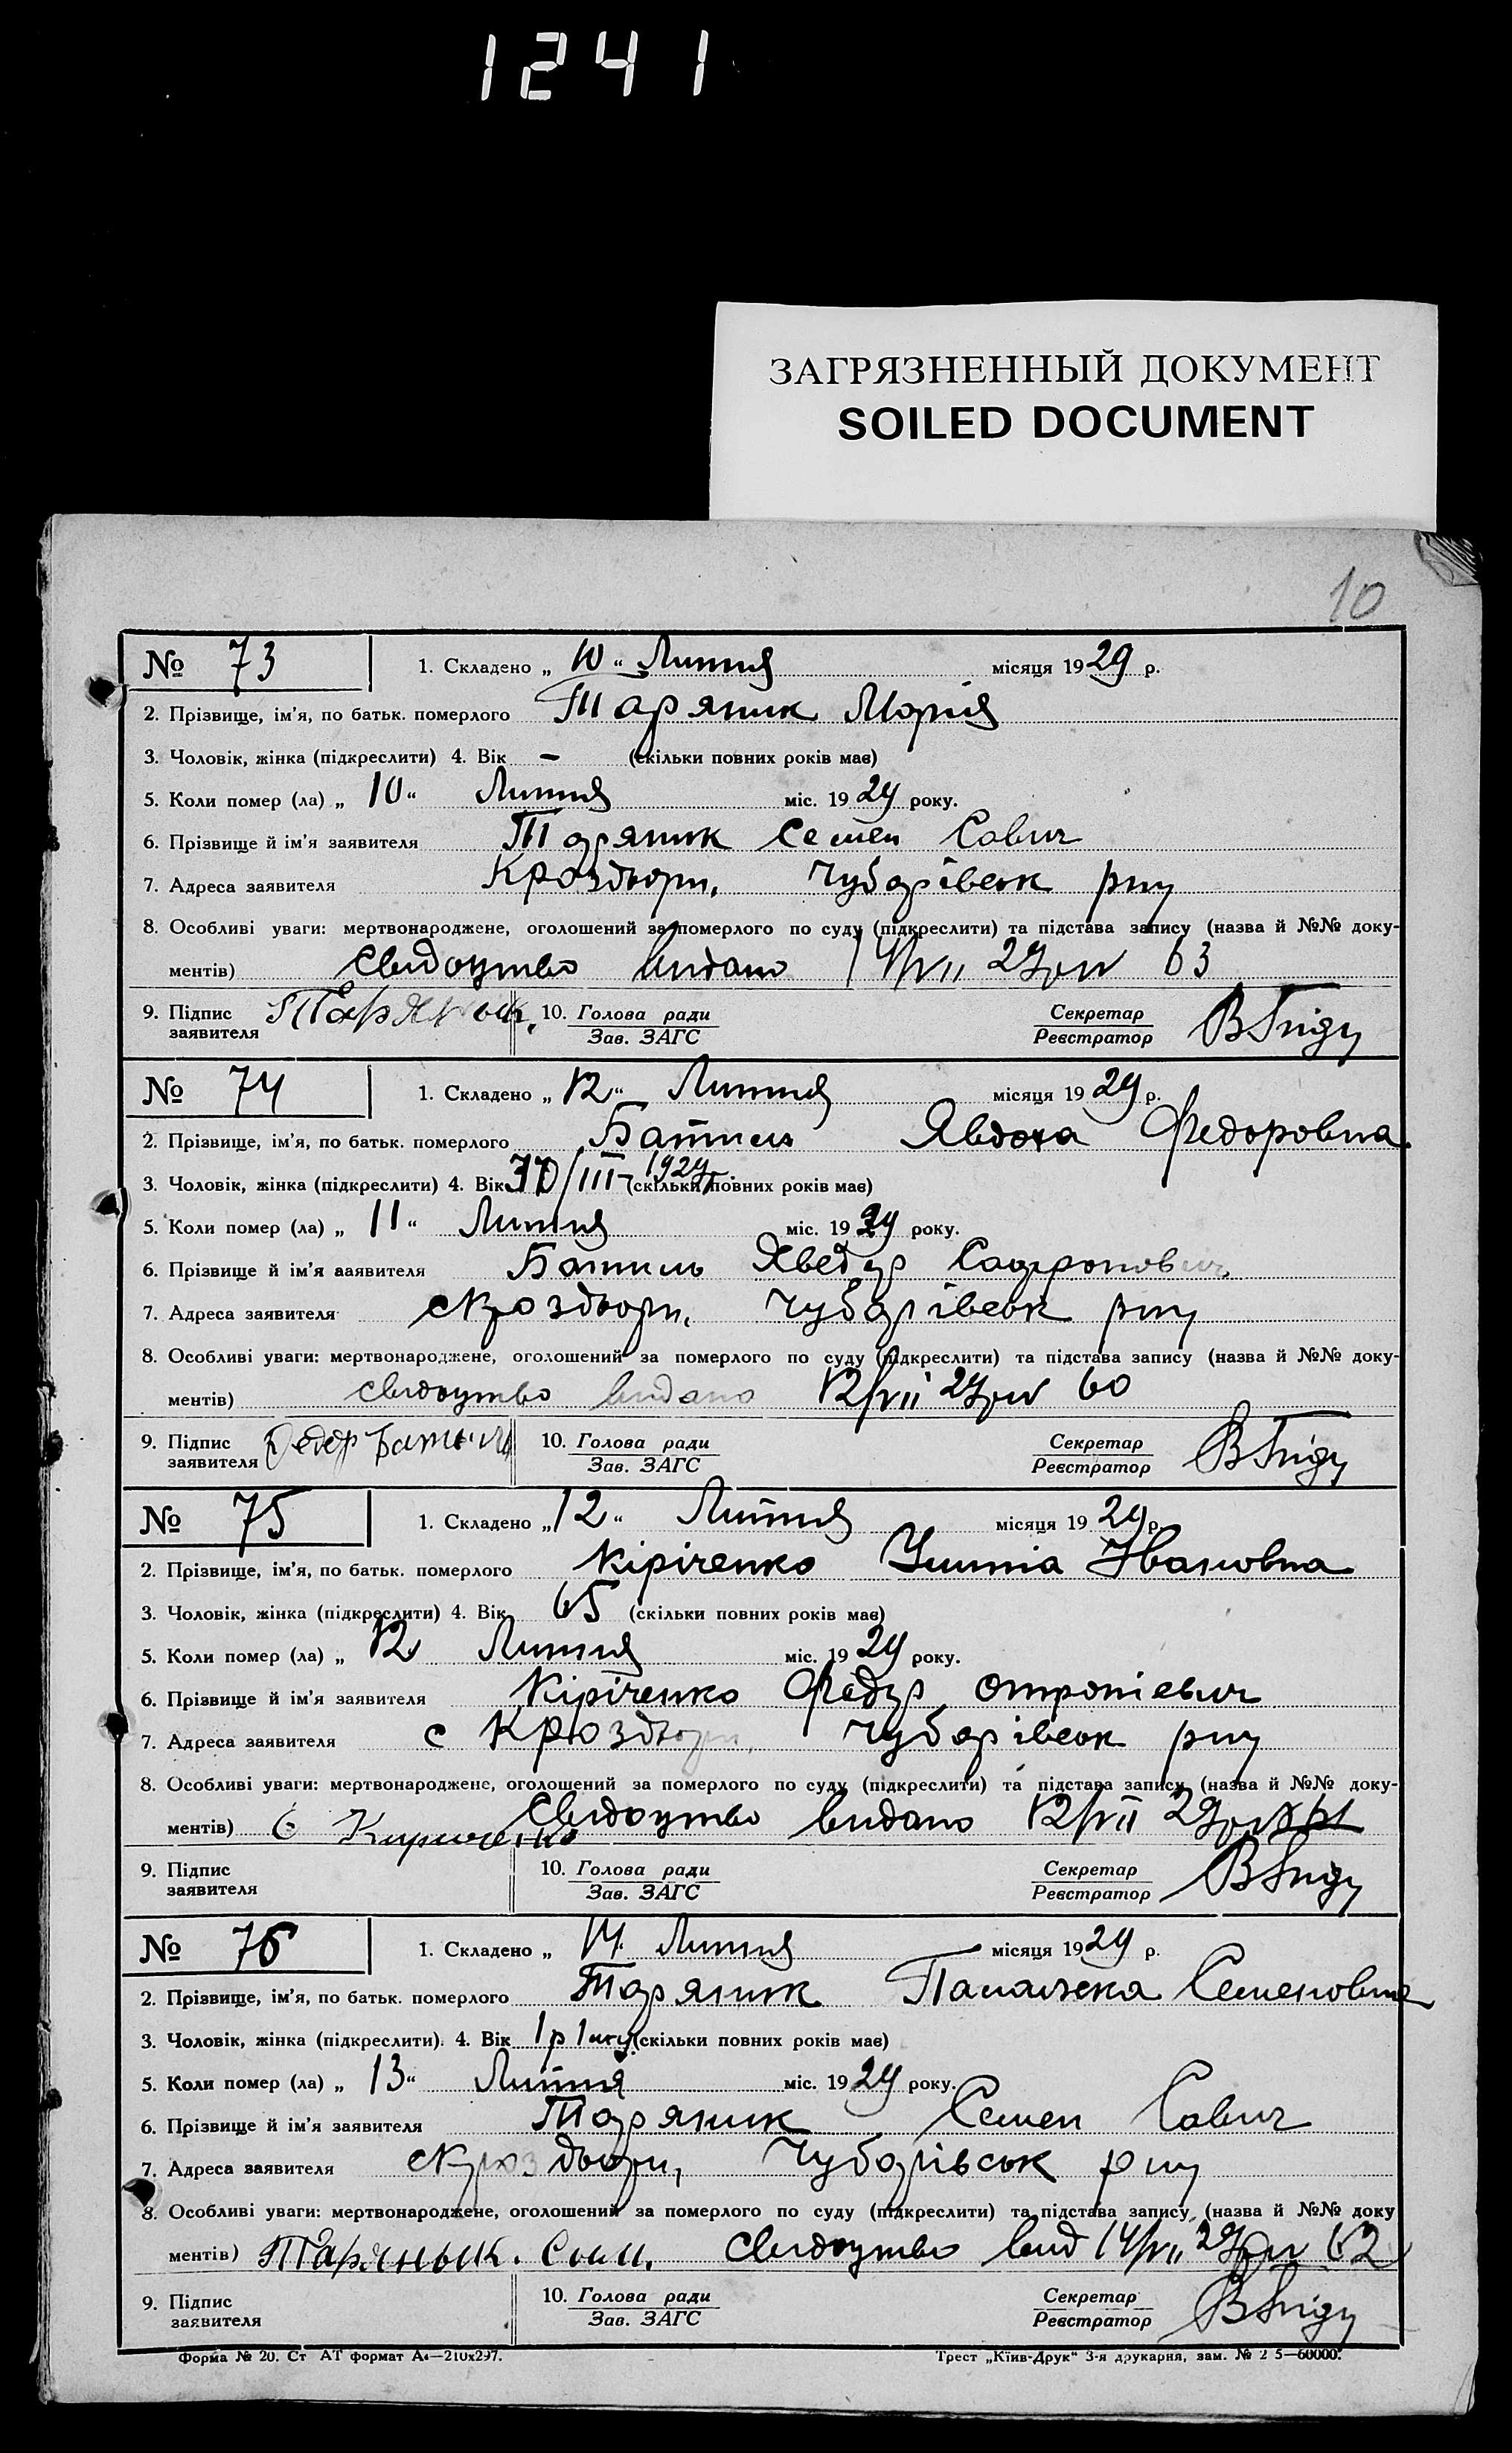 1241
ЗАГРЯЗНЕННЫЙ ДОКУМЕНТ
SOILED DOCUMENT
10
№ 73 1. Складено „ 10 “ Липня місяця 1929 р.
2. Прізвище, ім'я, по батьк. померлого Таряник Марія
3. Чоловік, жінка (підкреслити) 4. Вік – (скільки повних років має)
5. Коли помер (ла) „ 10 “ Липня міс. 1929 року.
6. Прізвище й ім'я заявителя Таряник Семен Савич
7. Адреса заявителя Чубарівськ р-ну
8. Особливі уваги: мертвонароджене, оголошений за померлого по суду (підкреслити) та підстава запису (назва й №№ доку-
ментів) Свидоцтво видано 63
9. Підпис заявителя Таряник. 10. Голова ради Зав. ЗАГС Секретар Реєстратор
№ 74 1. Складено „ 12 “ Липня місяця 1929 р.
2. Прізвище, ім'я, по батьк. померлого Явдоха Федоровна
3. Чоловік, жінка (підкреслити) 4. Вік /III–1929р. (скільки повних років має)
5. Коли помер (ла) „ 11 “ Липня міс. 1929 року.
6. Прізвище й ім'я заявителя Хведур
7. Адреса заявителя Чубарівськ р-ну
8. Особливі уваги: мертвонароджене, оголошений за померлого по суду (підкреслити) та підстава запису (назва й №№ доку-
ментів) свидоцтво видано 12/VII 29р № 60
9. Підпис заявителя Федор 10. Голова ради Зав. ЗАГС Секретар Реєстратор
№ 75 1. Складено „ 12 “ Липня місяця 1929 р.
2. Прізвище, ім'я, по батьк. померлого Кіріченко Устіа Івановна
3. Чоловік, жінка (підкреслити) 4. Вік 65 (скільки повних років має)
5. Коли помер (ла) „ 12 Липня міс. 1929 року.
6. Прізвище й ім'я заявителя Кіріченко Федур
7. Адреса заявителя с Чубарівськ р-ну
8. Особливі уваги: мертвонароджене, оголошений за померлого по суду (підкреслити) та підстава запису (назва й №№ доку-
ментів) Свидоцтво видано 12/VII 29р № 61
Кириченко
9. Підпис заявителя 10. Голова ради Зав. ЗАГС Секретар Реєстратор
№ 76 1. Складено „ 14 Липня місяця 1929 р.
2. Прізвище, ім'я, по батьк. померлого Таряник Палажка Семеновна
3. Чоловік, жінка (підкреслити). 4. Вік 1р 1 міс (скільки повних років має)
5. Коли помер (ла) „ 13 “ Липня міс. 1929 року.
6. Прізвище й ім'я заявителя Таряник Семен Савич
7. Адреса заявителя Чубарівськ р-ну
8. Особливі уваги: мертвонароджене, оголошений за померлого по суду (підкреслити) та підстава запису (назва й №№ доку
ментів) Таряньік. Сим. свидоцтво вид 14/VII 29р № 62
9. Підпис заявителя 10. Голова ради Зав. ЗАГС Секретар Реєстратор
Форма № 20. Ст АТ формат А4—210х297. Трест „Київ-Друк“ 3-я друкарня, зам. № 2 5—60000.